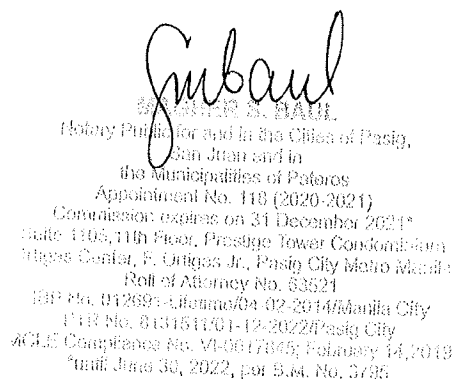 Gmbaul
S. BAUL
Notary Public for and in the Cities of Pasig,
San Juan and in
the Municipalities of Pateros
Appointment No. 118 (2020-2021)
Commission expires on 31 December 2021*
Suite 1105, 11th Floor, Prestige Tower Condominium
Ortigas Center, F. Ortigas Jr., Pasig City Metro Manila
Roll of Attorney No. 63521
IBP No. 012693-Lifetime/04-02-2014/Manila City
PTR No. 8131511/01-12-2022/Pasig City
MCLE Compliance No. VI-0017845; February 14,2019
*until June 30, 2022, per B.M. No. 3795